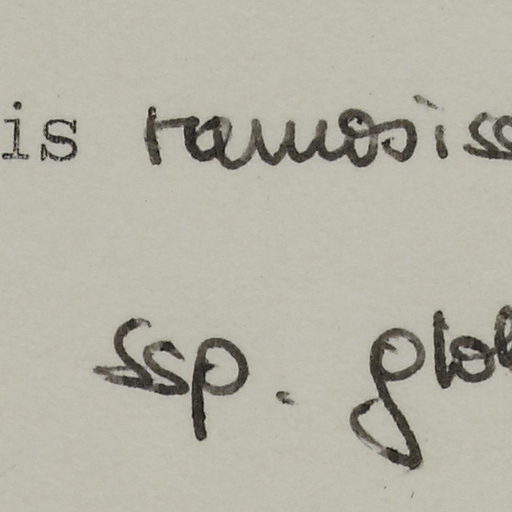 is ramosiss
ssp. glob